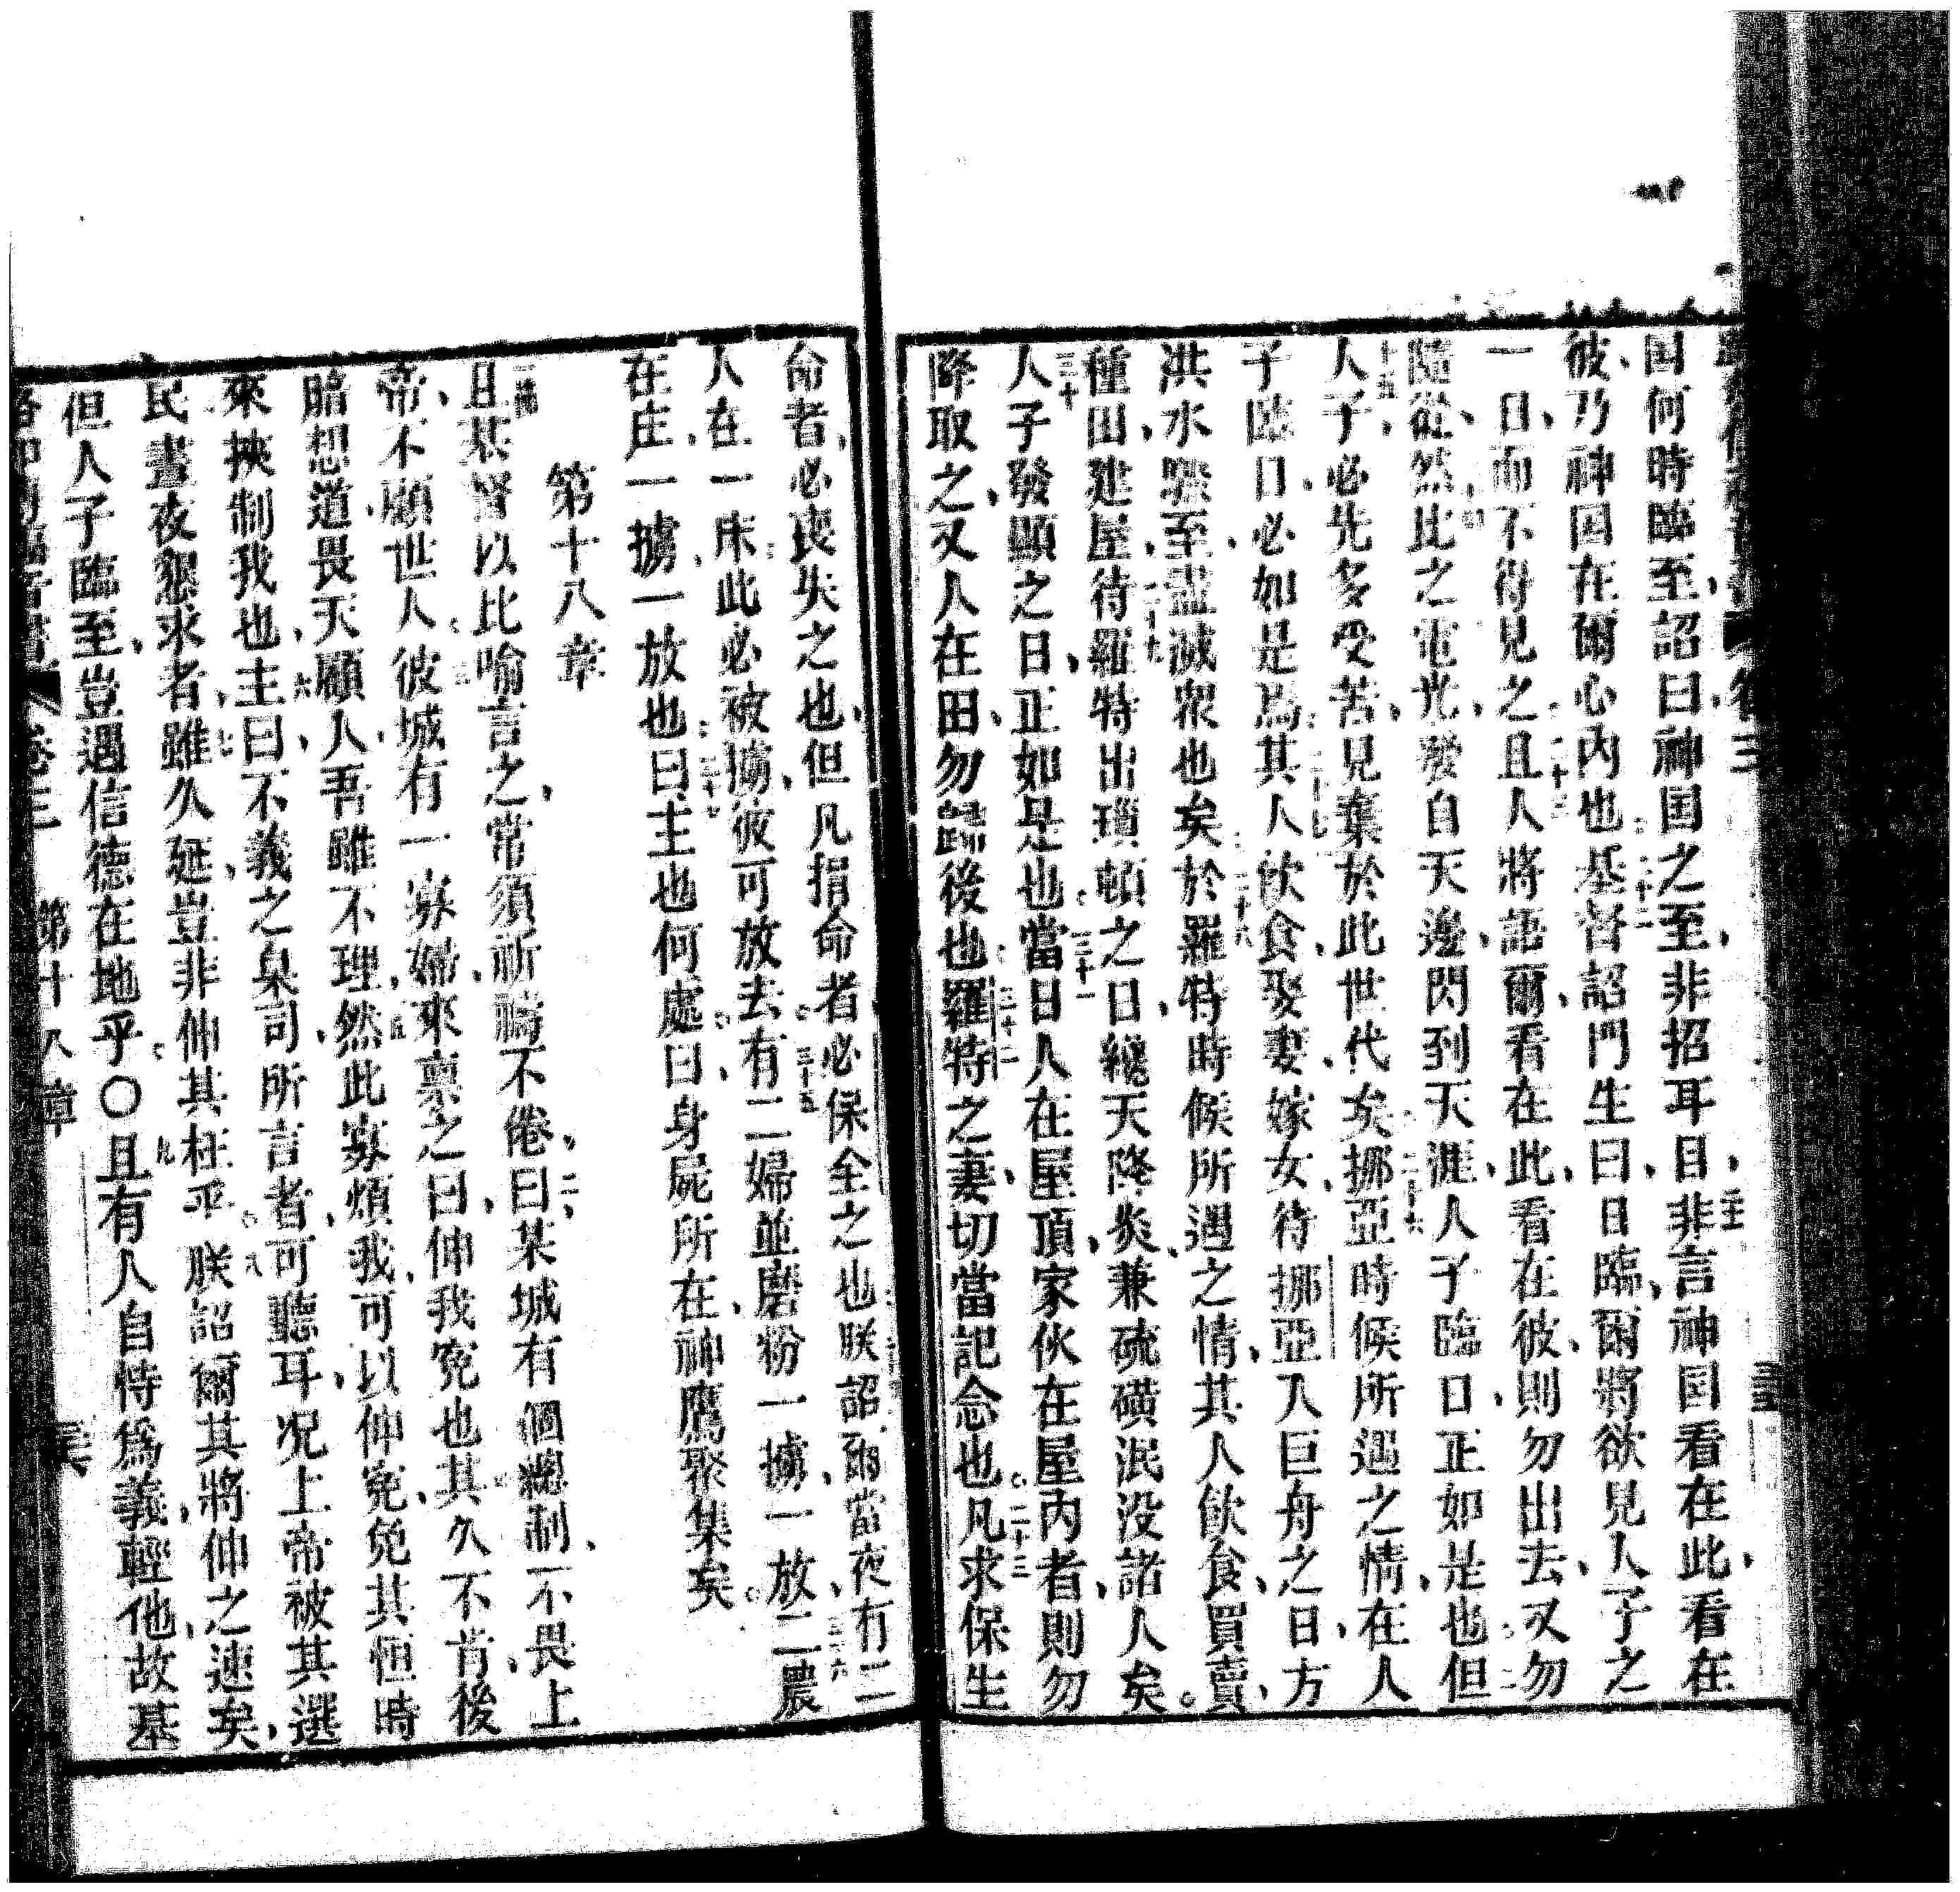 国何時臨至、詔曰、神国之至、非招耳目、非言神国看在此、看在
彼、乃神国在爾心內也基督詔門生曰、日臨、爾將欲見人子之
一日、而不得見之且人將語爾、看在此、看在彼、則勿出去、又勿
隨從、然比之電光、發自天邊、閃到天涯、人子臨日正如是也但
人子、必先多受苦、見棄於此世代矣挪亞時候所遇之情、在人
子臨日、必如是焉其人飲食、娶妻、嫁女、待挪亞入巨舟之日、方
洪水驟至、盡滅眾也矣於羅特時候所遇之情、其人飲食、買賣、
種田、建屋、待羅特出瑣頓之日、纔天降炎、兼硫磺泯没諸人矣。
人子發顯之日、正如是也當日人在屋頂、家伙在屋內者、則勿
降取之、又人在田、勿歸後也羅特之妻、切當記念也凡求保生
命者、必喪失之也、但凡捐命者必保全之也朕詔爾當夜、有二
人在一床此必被擄、彼可放去有二婦並磨粉一擄、一放二農
在庄、一擄、一放也曰、主也何處曰、身屍所在、神鷹聚集矣。
第十八章
且基督以比喻言之、常須祈禱不倦、曰某城有個總制、不畏上
帝、不顧世人彼城有一寡婦、來禀之曰、伸我冤也其久不肯、後
暗想道、畏天顧人、吾雖不理、然此寡煩我、可以伸冤、免其恒時
來挾制我也、主曰、不義之臬司、所言者、可聽耳、况上帝被其選
民晝夜懇求者、雖久延、豈非伸其枉乎朕詔爾其將伸之速矣、
但人子臨至、豈遇信德在地乎○且有人自恃爲義、輕他、故基
卷三 第十八章